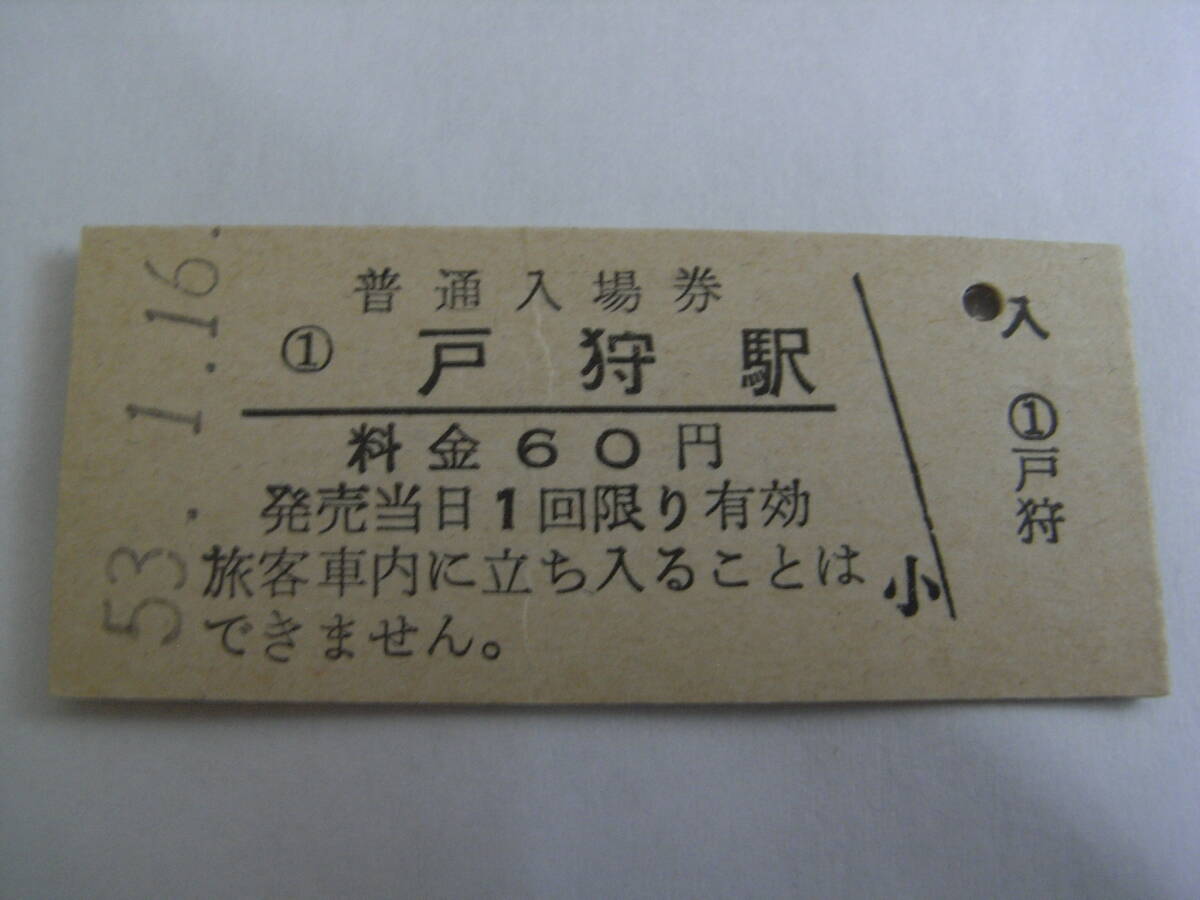 53.1.16.
普通入場券
① 戸狩駅
料金60円
発売当日1回限り有効
旅客車内に立ち入ることは
できません。
小
入
①
戸狩